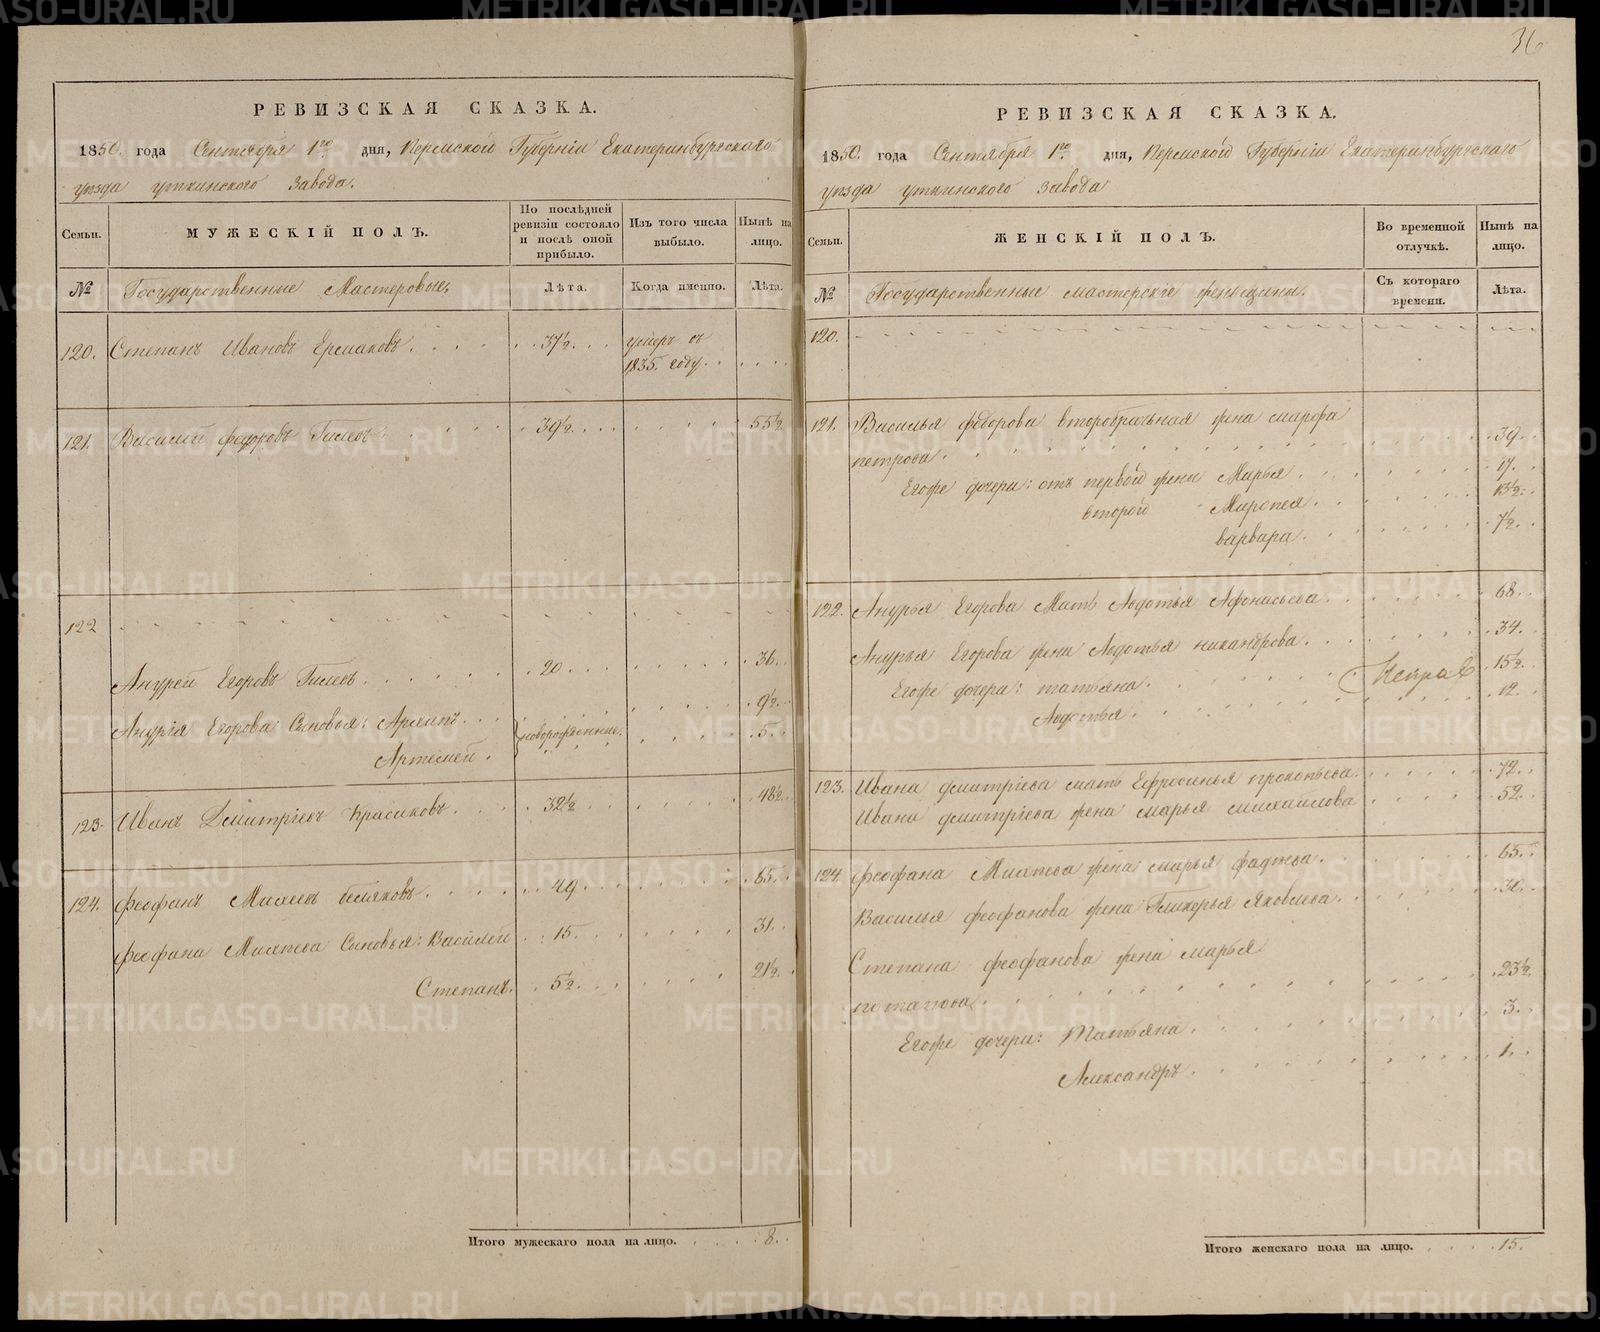 36
РЕВИЗСКАЯ СКАЗКА.
1850. года Сентября 1го дня, Пермской Губернiи Екатеринбургскаго
уѣзда уткинскаго завода.
Семьи.
МУЖЕСКIЙ ПОЛЪ.
По послѣдней ревизiи состояло и послѣ оной прибыло.
Изъ того числа выбыло.
Нынѣ на лицо.
№
Государственные Мастеровые.
Лѣта.
Когда именно.
Лѣта.
120. Степанъ Ивановъ Ермаковъ . . . . 37½ . . умеръ въ
1835 году . .
121. Василей федоровъ Гилевъ . . . 39½ . . . 55½
122
Андрей Егоровъ Гилевъ . . . . 20 . . . 36.
Андрiя Егорова Сыновья: Архипъ . . . новорожденные . 9½
Артемей . . 5.
123. Иванъ Дмитрiевъ Красиковъ . . . 32½ . . . 48½
124. феофанъ Михеевъ . . . 49 . . . 65.
феофана Михѣева Сыновья: Василей . 15. . . . 31.
Степанъ. . 5½ . . . 21½
Итого мужескаго пола на лицо. . . . 8.
РЕВИЗСКАЯ СКАЗКА.
1850. года Сентября 1го дня, Пермской Губернiи Екатеринбургскаго
уѣзда уткинскаго завода
Семьи.
ЖЕНСКIЙ ПОЛЪ.
Во временной отлучкѣ.
Нынѣ на лицо.
№
Государственные мастерскiе женьщины.
Съ котораго времени.
Лѣта.
120.
121. Василья федорова второбрачьная жена марфа
петрова . . . . 39.
Егоже дочери: отъ первой жены Марья . . . 17.
второй Миропея . . . 13½
варвара . . . 7½
122. Андрея Егорова Мать Авдотья Афонасьева . . . 68.
Андрея Егорова жена Авдотья никандрова . . . 34.
Егоже дочери: татьяна . . . 15½
Авдотья . . . 12.
123. Ивана дмитрiева мать Ефросинья прокопьева . . . 72.
Ивана дмитрiева жена марья михайлова . . . 52.
124. феофана Михѣева жена марья . . . 65.
Василья феофанова жена Гликерья Яковлева . . .
Степана феофанова жена марья
потапова . . . 23½
Егоже дочери: Татьяна . . . 3.
Александръ . . . 1.
Итого женскаго пола на лицо. . . . 15.
METRIKI.GASO-URAL.RU